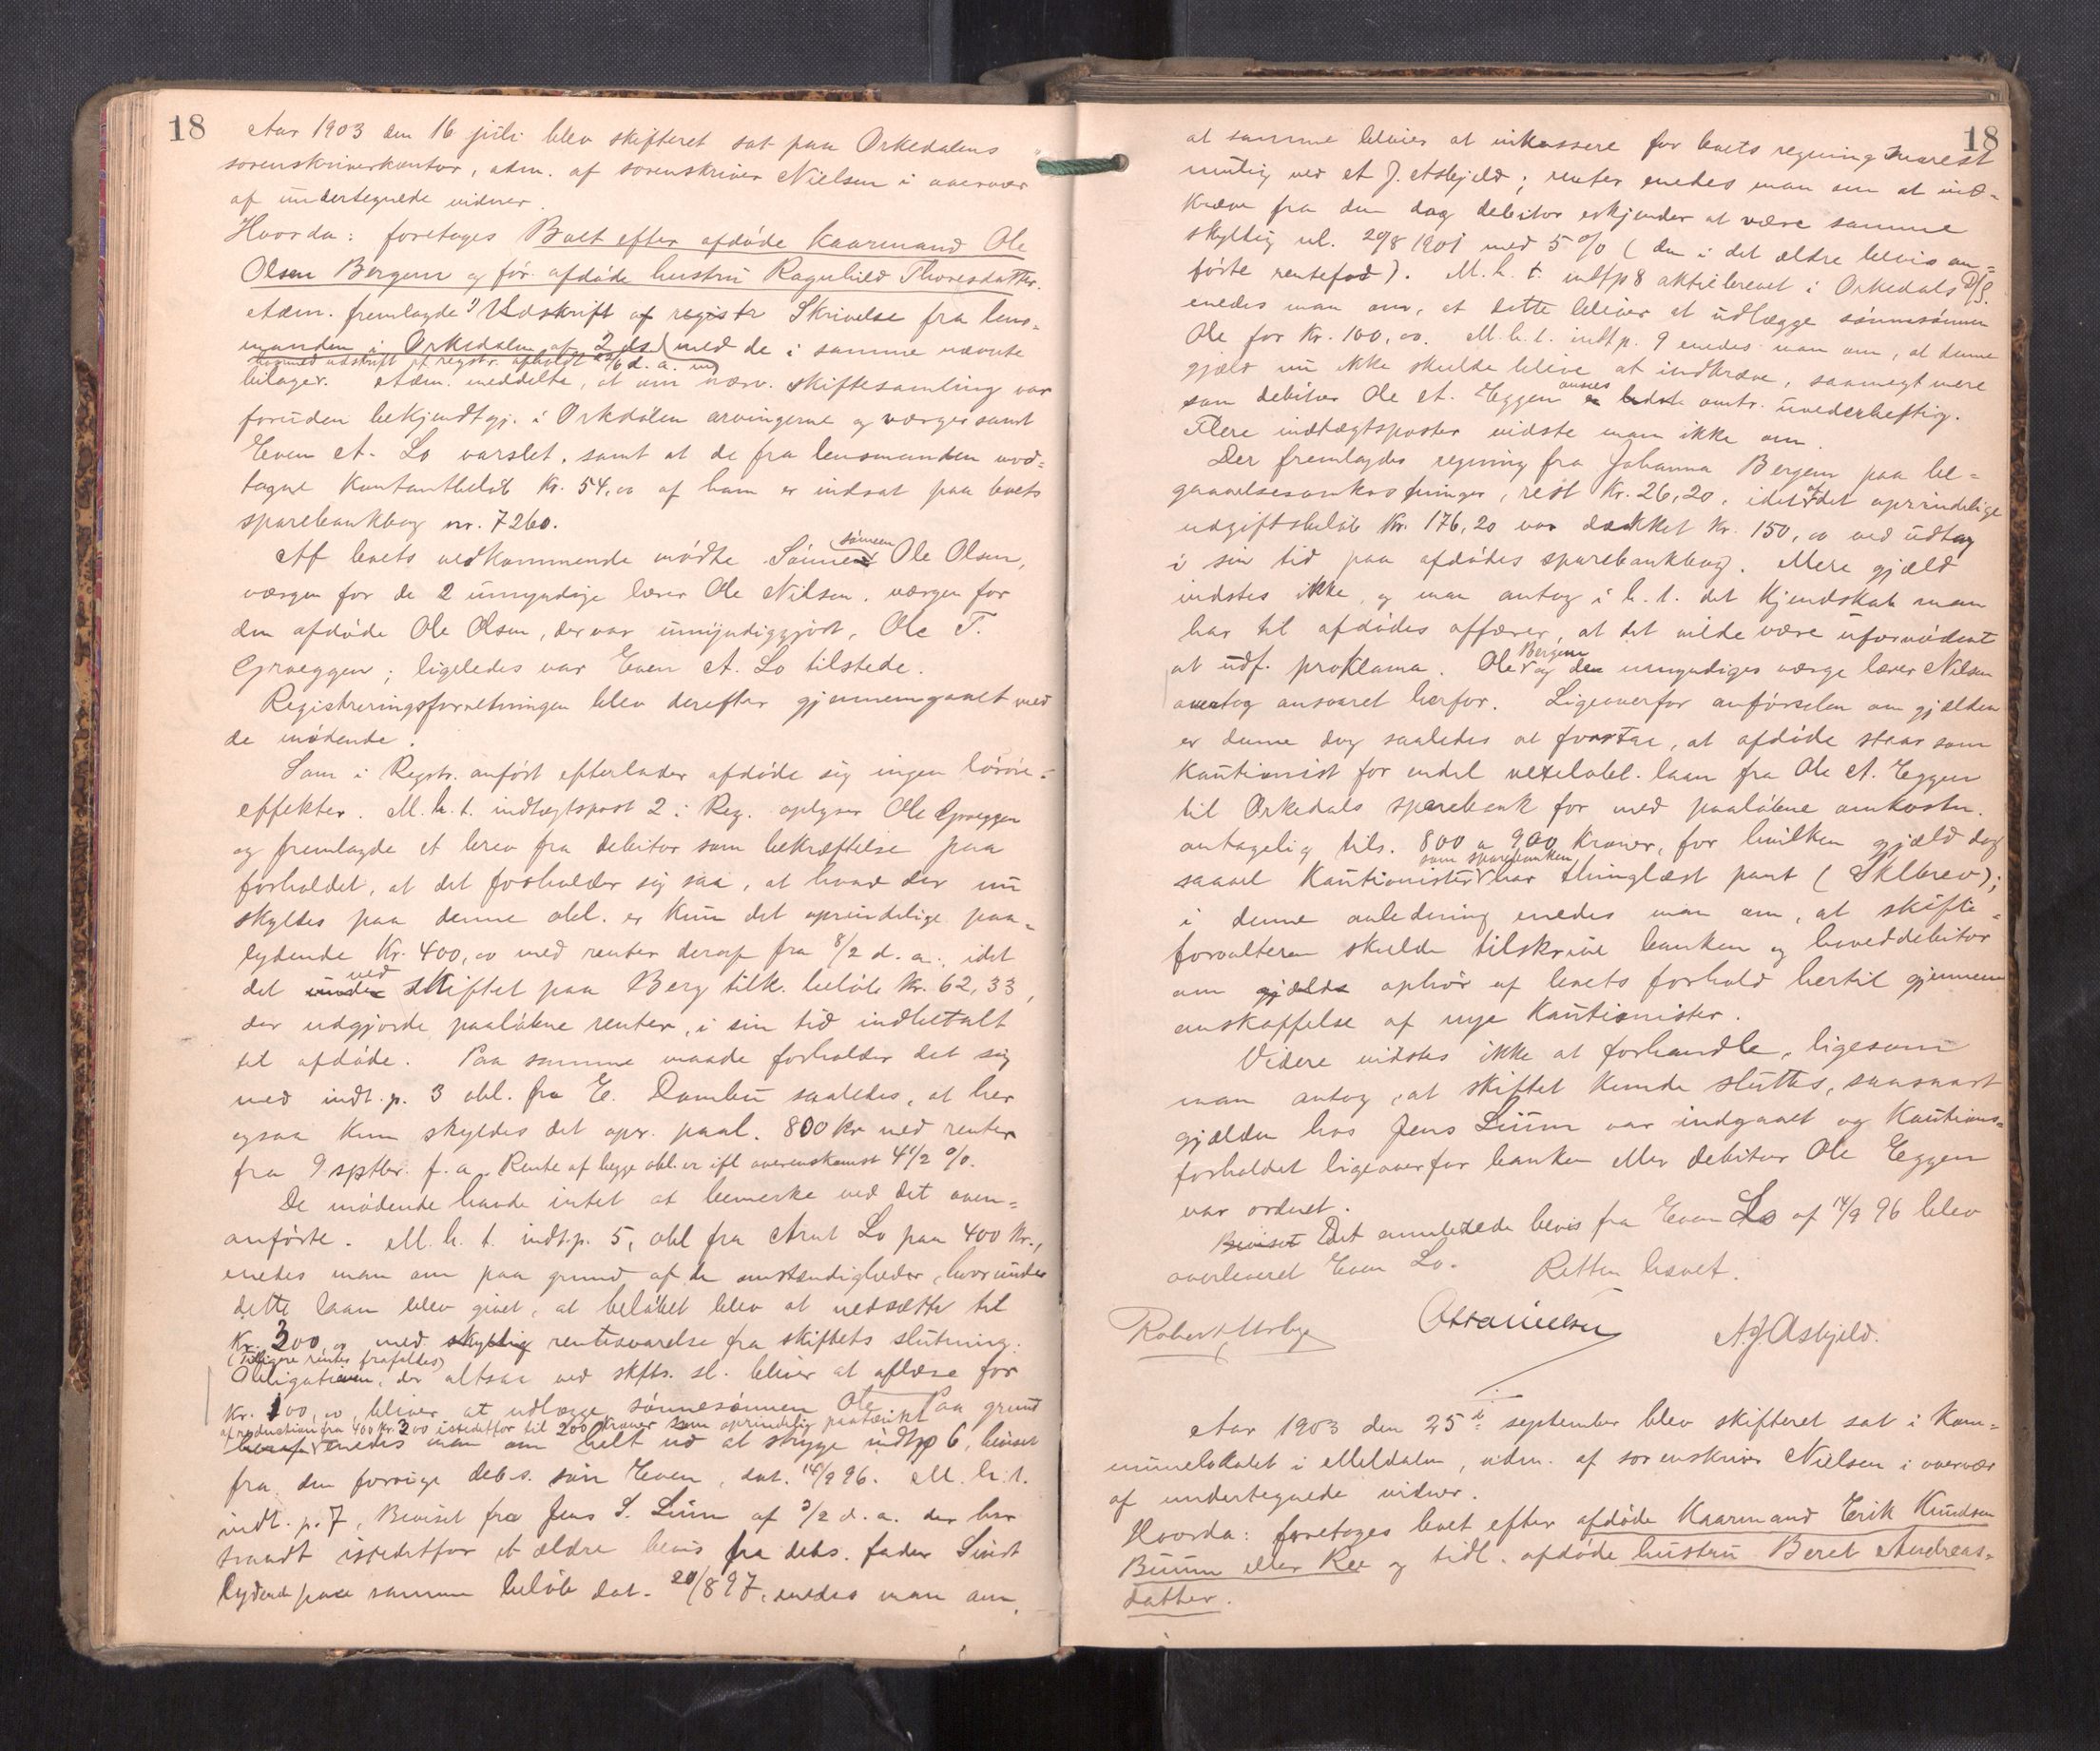 18
Aar 1903 den 16 juli blev skifteret sat paa Orkedalens
sorenskriverkontor, adm. af sorenskriver Nielsen i overvær
af undertegnede vidner.
Hvorda: foretoges Boet efter afdøde kaarmand Ole
Olsen Bergem og før afdøde hustru Ragnhild Thoresdatter.
Adm. fremlagde 1) Udskrift af registr Skrivelse fra lens-
manden i Orkedalen af 2 ds. med de i samme nævnte
hvormed udskrift af registr. afholdt 22/6 d. a.
bilager. Adm. meddelte, at om nærv. skiftesamling var
foruden bekjendtgj. i Orkdalen arvingerne og værger samt
Even A. Lo varslet, samt at de fra lensmanden mod-
tagne Kontantbeløb Kr. 54,00 af ham er indsat paa boets
sparebankbog nr. 7260.
Af boets vedkommende mødte Sønnen sønnen Ole Olsen,
værgen for de 2 umyndige lærer Ole Nilsen, værgen for
den afdøde Ole Olsen, der var umyndiggjort, Ole T.
Graeggen; ligeledes var Even A. Lo tilstede.
Registreringsforretningen blev derefter gjennemgaaet med
de mødende.
Som i Regstr. anført efterlader afdøde sig ingen løsøre-
effekter. M.h.t. indtægtspost 2 i Reg. oplyser Ole Graeggen
og fremlagde et brev fra debitor som bekræftelse paa
forholdet, at det forholder sig saa, at hvad der nu
skyldes paa denne obl. er kun det oprindelige paa-
lydende Kr. 400,00 med renter deraf fra 8/2 d. a., idet
det under ved skiftet paa Berg tilk. beløb Kr. 62,33,
der udgjorde paaløbne renter, i sin tid indbetalt
til afdøde. Paa samme maade forholder det sig
med indt. p. 3 obl. fra E. Dombu saaledes, at her
ogsaa kun skyldes det opr. paal. 800 kr med renter
fra 9 sptbr. f. a. Rente af begge obl. er ifl overenskomst 4 1/2 %.
De mødende havde intet at bemerke ved det oven-
anførte. M. h. t. indt.p. 5, obl fra Arnt Lo paa 400 Kr.,
enedes man om paa grund af de omstændigheder, hvorunder
dette laan blev givet, at beløbet blev at nedsætte til
Kr. 300,00 med skyldig rentesvarelse fra skiftets slutning.
(Tidligere renter frafaldes)
Obligationen, der altsaa ved skfts. sl. bliver at aflæse for
Kr. 100,00, bliver at udlægge sønnesønnen Ole. Paa grund
af reduction fra 400 Kr. 300 istedetfor til 200 Kroner som oprindelig paatænkt
heraf enedes man om helt ud at stryge indtp 6, beviset
fra den forrige debs. søn Even, dat. 14/9 96. M. h. t.
indt. p. 7, Beviset fra Jens S. Luum af 3/2 d. a. der har
traadt istedetfor et ældre bevis fra debs. fader Sivert
lydende paa samme beløb dat. 20/8 97, enedes man om,
18
at samme bliver at inkassere for boets regning snarest
mulig ved A. J. Asbjeld; renter enedes man om at ind-
kræve fra den dag debitor erkjender at være samme
skyldig nl. 20/8 1901 med 5 % (den i det ældre bevis an-
førte rentefod). M. h. t. indtp 8 aktiebrevet i Orkedals D/S.
enedes man om, at dette bliver at udlægge sønnesønnen
Ole for Kr. 100,00. M. h. t. indt p. 9 enedes man om, at denne
gjæld nu ikke skulde blive at indkræve, saameget mere
som debitor Ole A. Eggen er ansees uvederheftig.
Flere indtægtsposter vidste man ikke om.
Der fremlagdes regning fra Johanna Bergem paa be-
gravelsesomkostninger, rest Kr. 26,20, idet af det oprindelige
udgiftsbeløb Kr. 176,20 var dækket Kr. 150,00 ved udtag
i sin tid paa afdødes sparebankbog. Mere gjæld
vidstes ikke, og man antog i h. t. det Kjendskab man
har til afdødes affærer, at det vilde være ufornødent
at udf. proklama. Ole Bergem og den umyndiges værge lærer Nilsen
overtog ansvaret herfor. Ligeoverfor anførselen om gjælden
er denne dog saaledes at forstaa, at afdøde staar som
Kautionist for endel vexelobl. laan fra Ole A. Eggen
til Orkedals sparebank for med paaløbne omkostn.
antagelig tils. 800 a 900 Kroner, for hvilken gjæld dog
saavel Kautionister som sparebanken har thinglæst pant (Sklbrev);
i denne anledning enedes man om, at skifte-
forvalteren skulde tilskrive banken og hoveddebitor
om gjælds ophør af boets forhold hertil gjennem
anskaffelse af nye Kautionister.
Videre vidstes ikke at forhandle, ligesom
man antog, at skiftet kunde sluttes, saasnart
gjælden hos Jens Luum var indgaaet og Kautions-
forholdet ligeoverfor banken eller debitor Ole Eggen
var ordnet.
Beviset Det anmeldede bevis fra Even Lo af 14/9 96 blev
overleveret Even Lo. Retten hævet.
A. J. Asbjeld.
Aar 1903 den 25de september blev skifteret sat i Kom-
munelokalet i Meldalen, adm. af sorenskriver Nielsen i overvær
af undertegnede vidner.
Hvorda: foretoges boet efter afdøde Kaarmand Erik Knudsen
Buum eller Ree og tidl. afdøde hustru Beret Andreas-
datter.